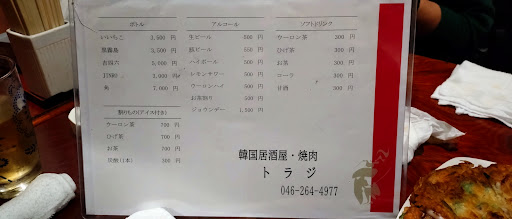 ボトル
いいちこ 3,500 円
黒霧島 3,500 円
吉四六 5,000 円
JINRO 3,000 円
角 7,000 円
割りもの(アイス付き)
ウーロン茶 700 円
ひげ茶 700 円
お茶 700 円
炭酸(1本) 300 円
アルコール
生ビール 500 円
瓶ビール 550 円
ハイボール 500 円
レモンサワー 500 円
ウーロンハイ 500 円
お茶割り 500 円
ジョウンデー 1,500 円
ソフトドリンク
ウーロン茶 300 円
ひげ茶 300 円
お茶 300 円
コーラ 300 円
甘酒 300 円
韓国居酒屋・焼肉
トラジ
046-264-4977